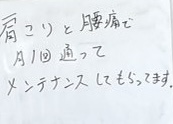 肩こりと腰痛で
月1回通って
メンテナンスしてもらってます。